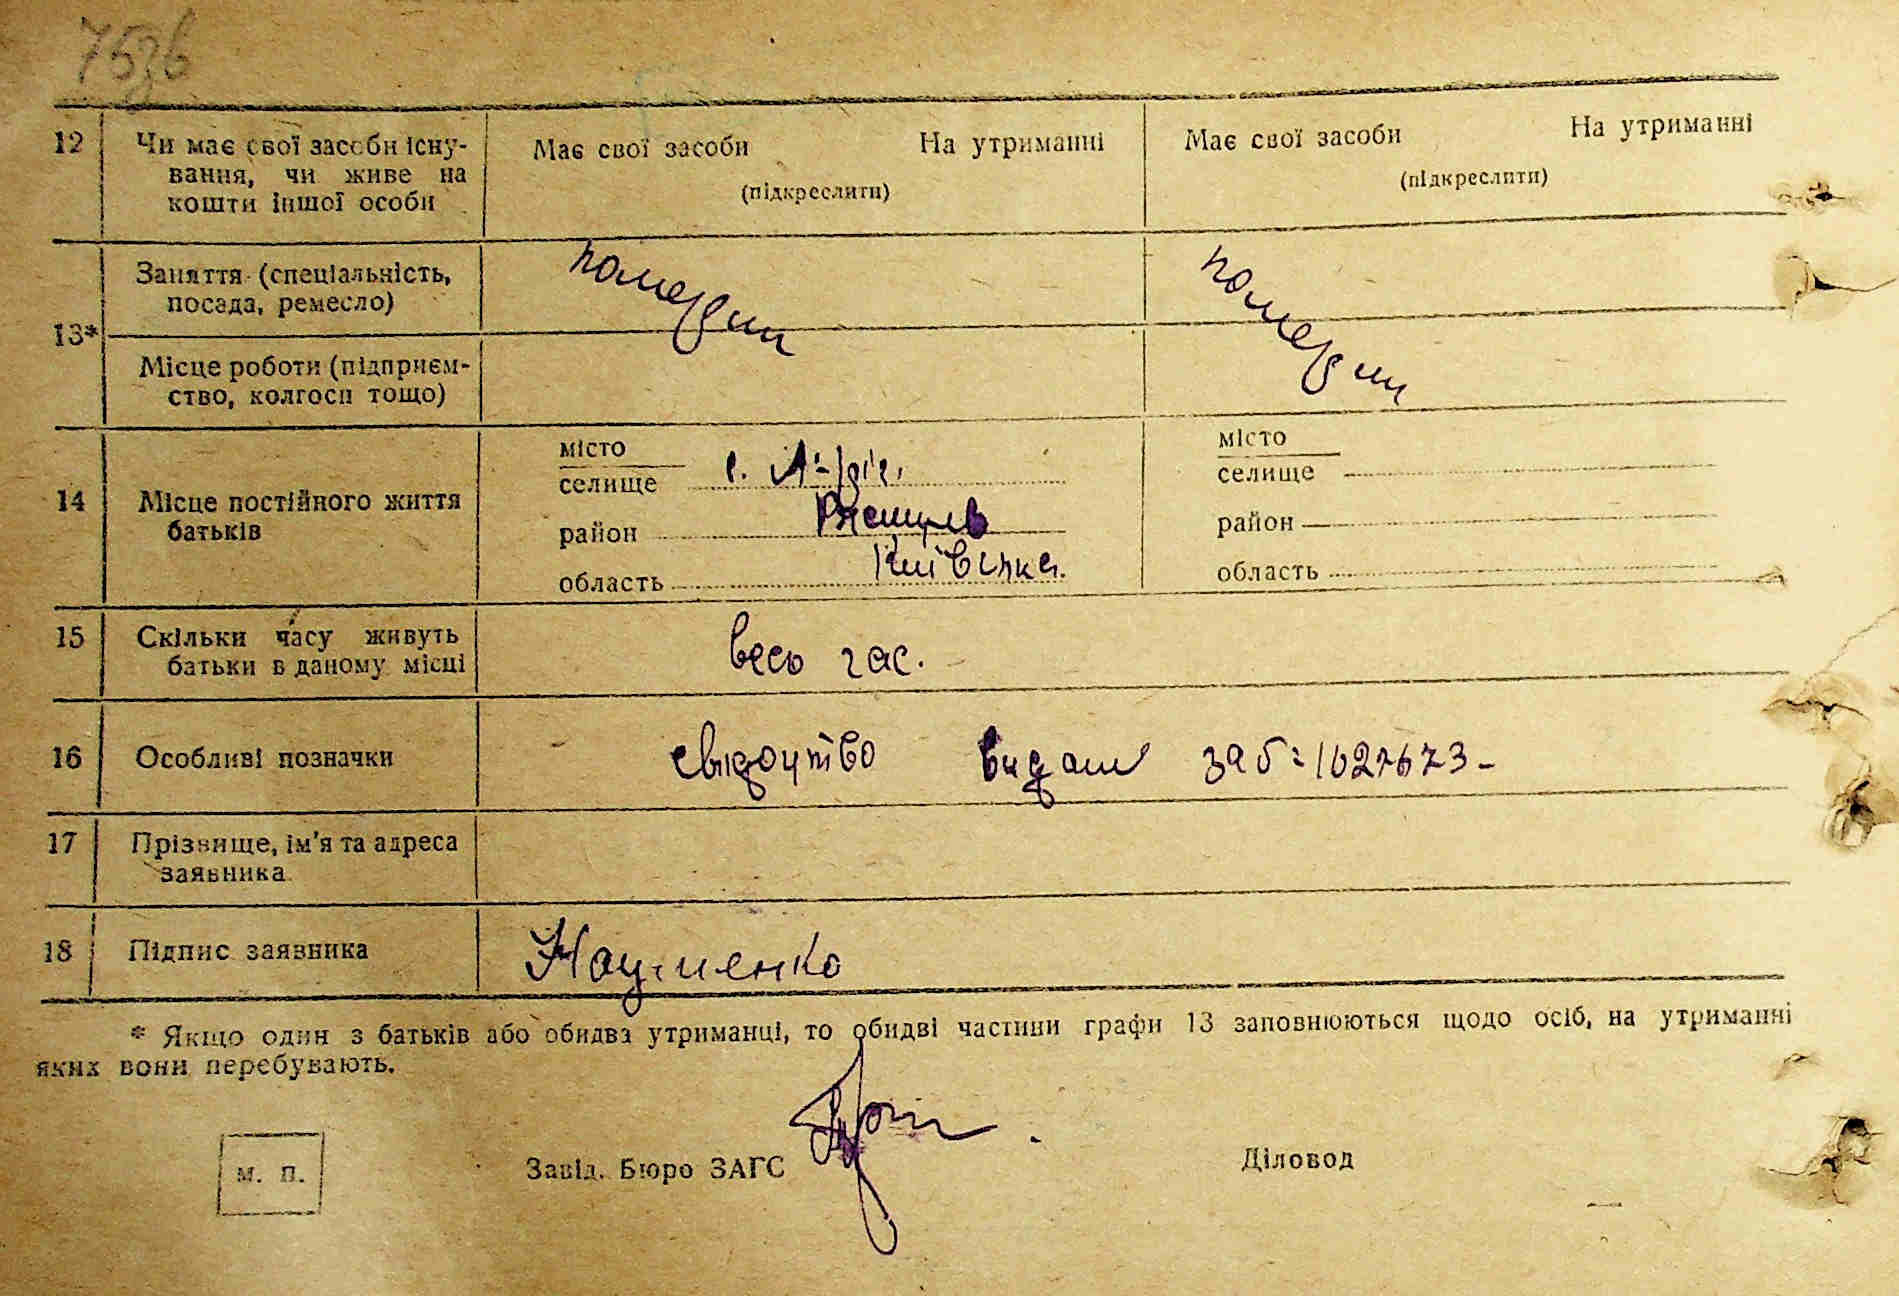 75зв
12 Чи має свої засоби існу- Має свої засоби На утриманні Має свої засоби На утриманні
вання, чи живе на (підкреслити) (підкреслити)
кошти іншої особи
Заняття (спеціальність, померли померли
посада, ремесло)
13*
Місце роботи (підприєм-
ство, колгосп тощо)
місто місто
селище с. селище
14 Місце постійного життя
батьків
район район
область Київська. область
15 Скільки часу живуть весь час.
батьки в даному місці
16 Особливі позначки свідоцтво видали за
17 Прізвище, ім'я та адреса
заявника
18 Підпис заявника Науменко
* Якщо один з батьків або обидва утриманці, то обидві частини графи 13 заповнюються щодо осіб, на утриманні
яких вони перебувають.
м. п. Завід. Бюро ЗАГС Діловод